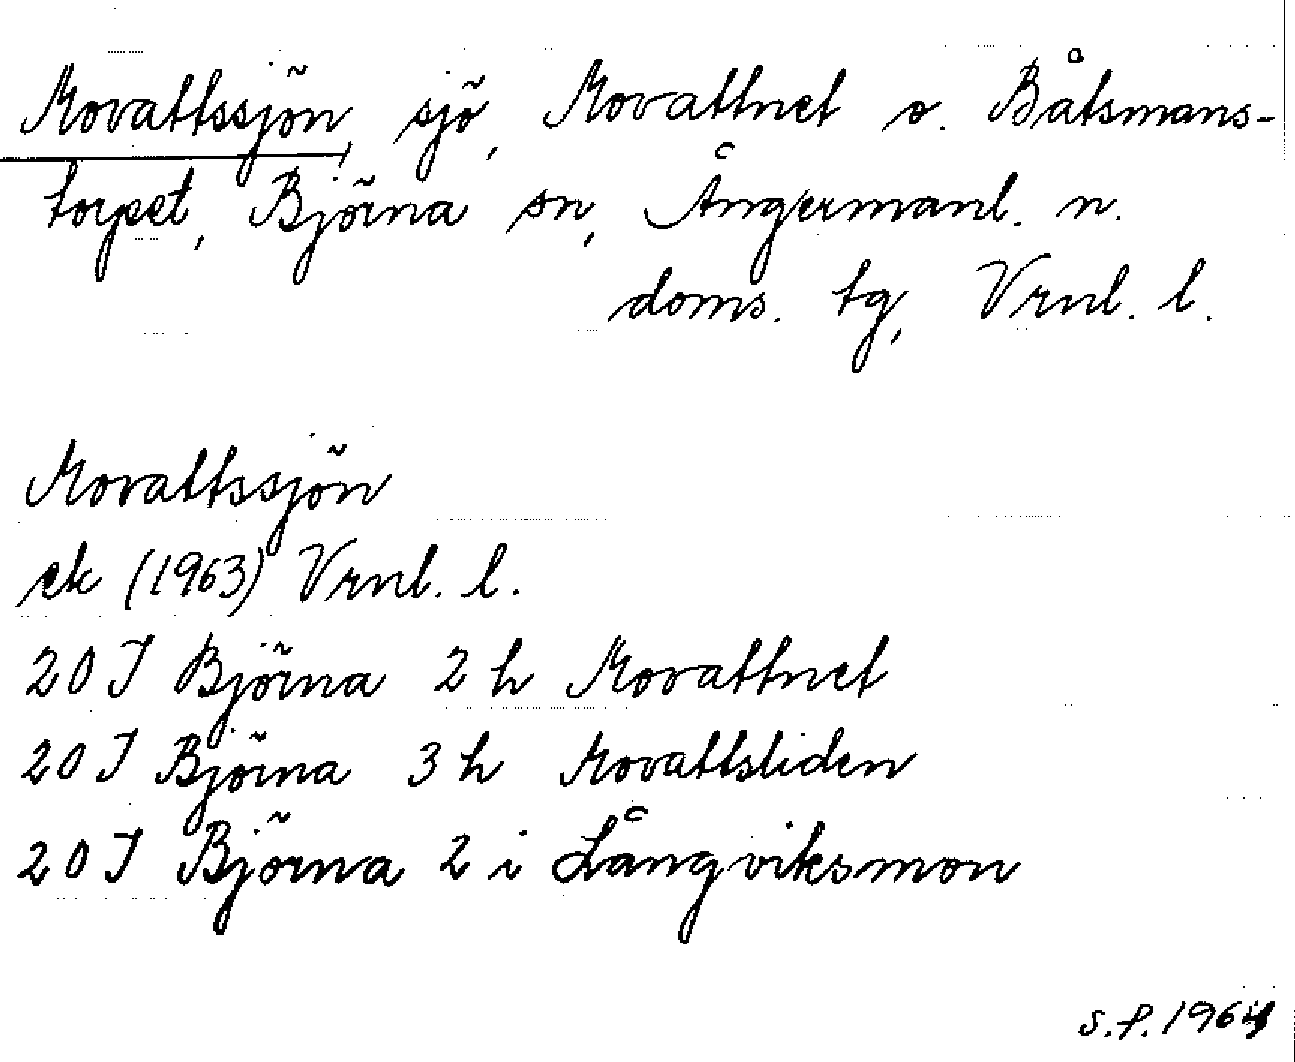 Movattssjön, sjö, Movattnet o. Båtsmans-
torpet, Björna sn, Ångermanl. n.
doms. tg, Vrnl. l.
Movattssjön
ek (1963) Vrnl. l.
20 J Björna 2 h Movattnet
20 J Björna 3 h Movattsliden
20 J Björna 2 i Långviksmon
S.P. 1964